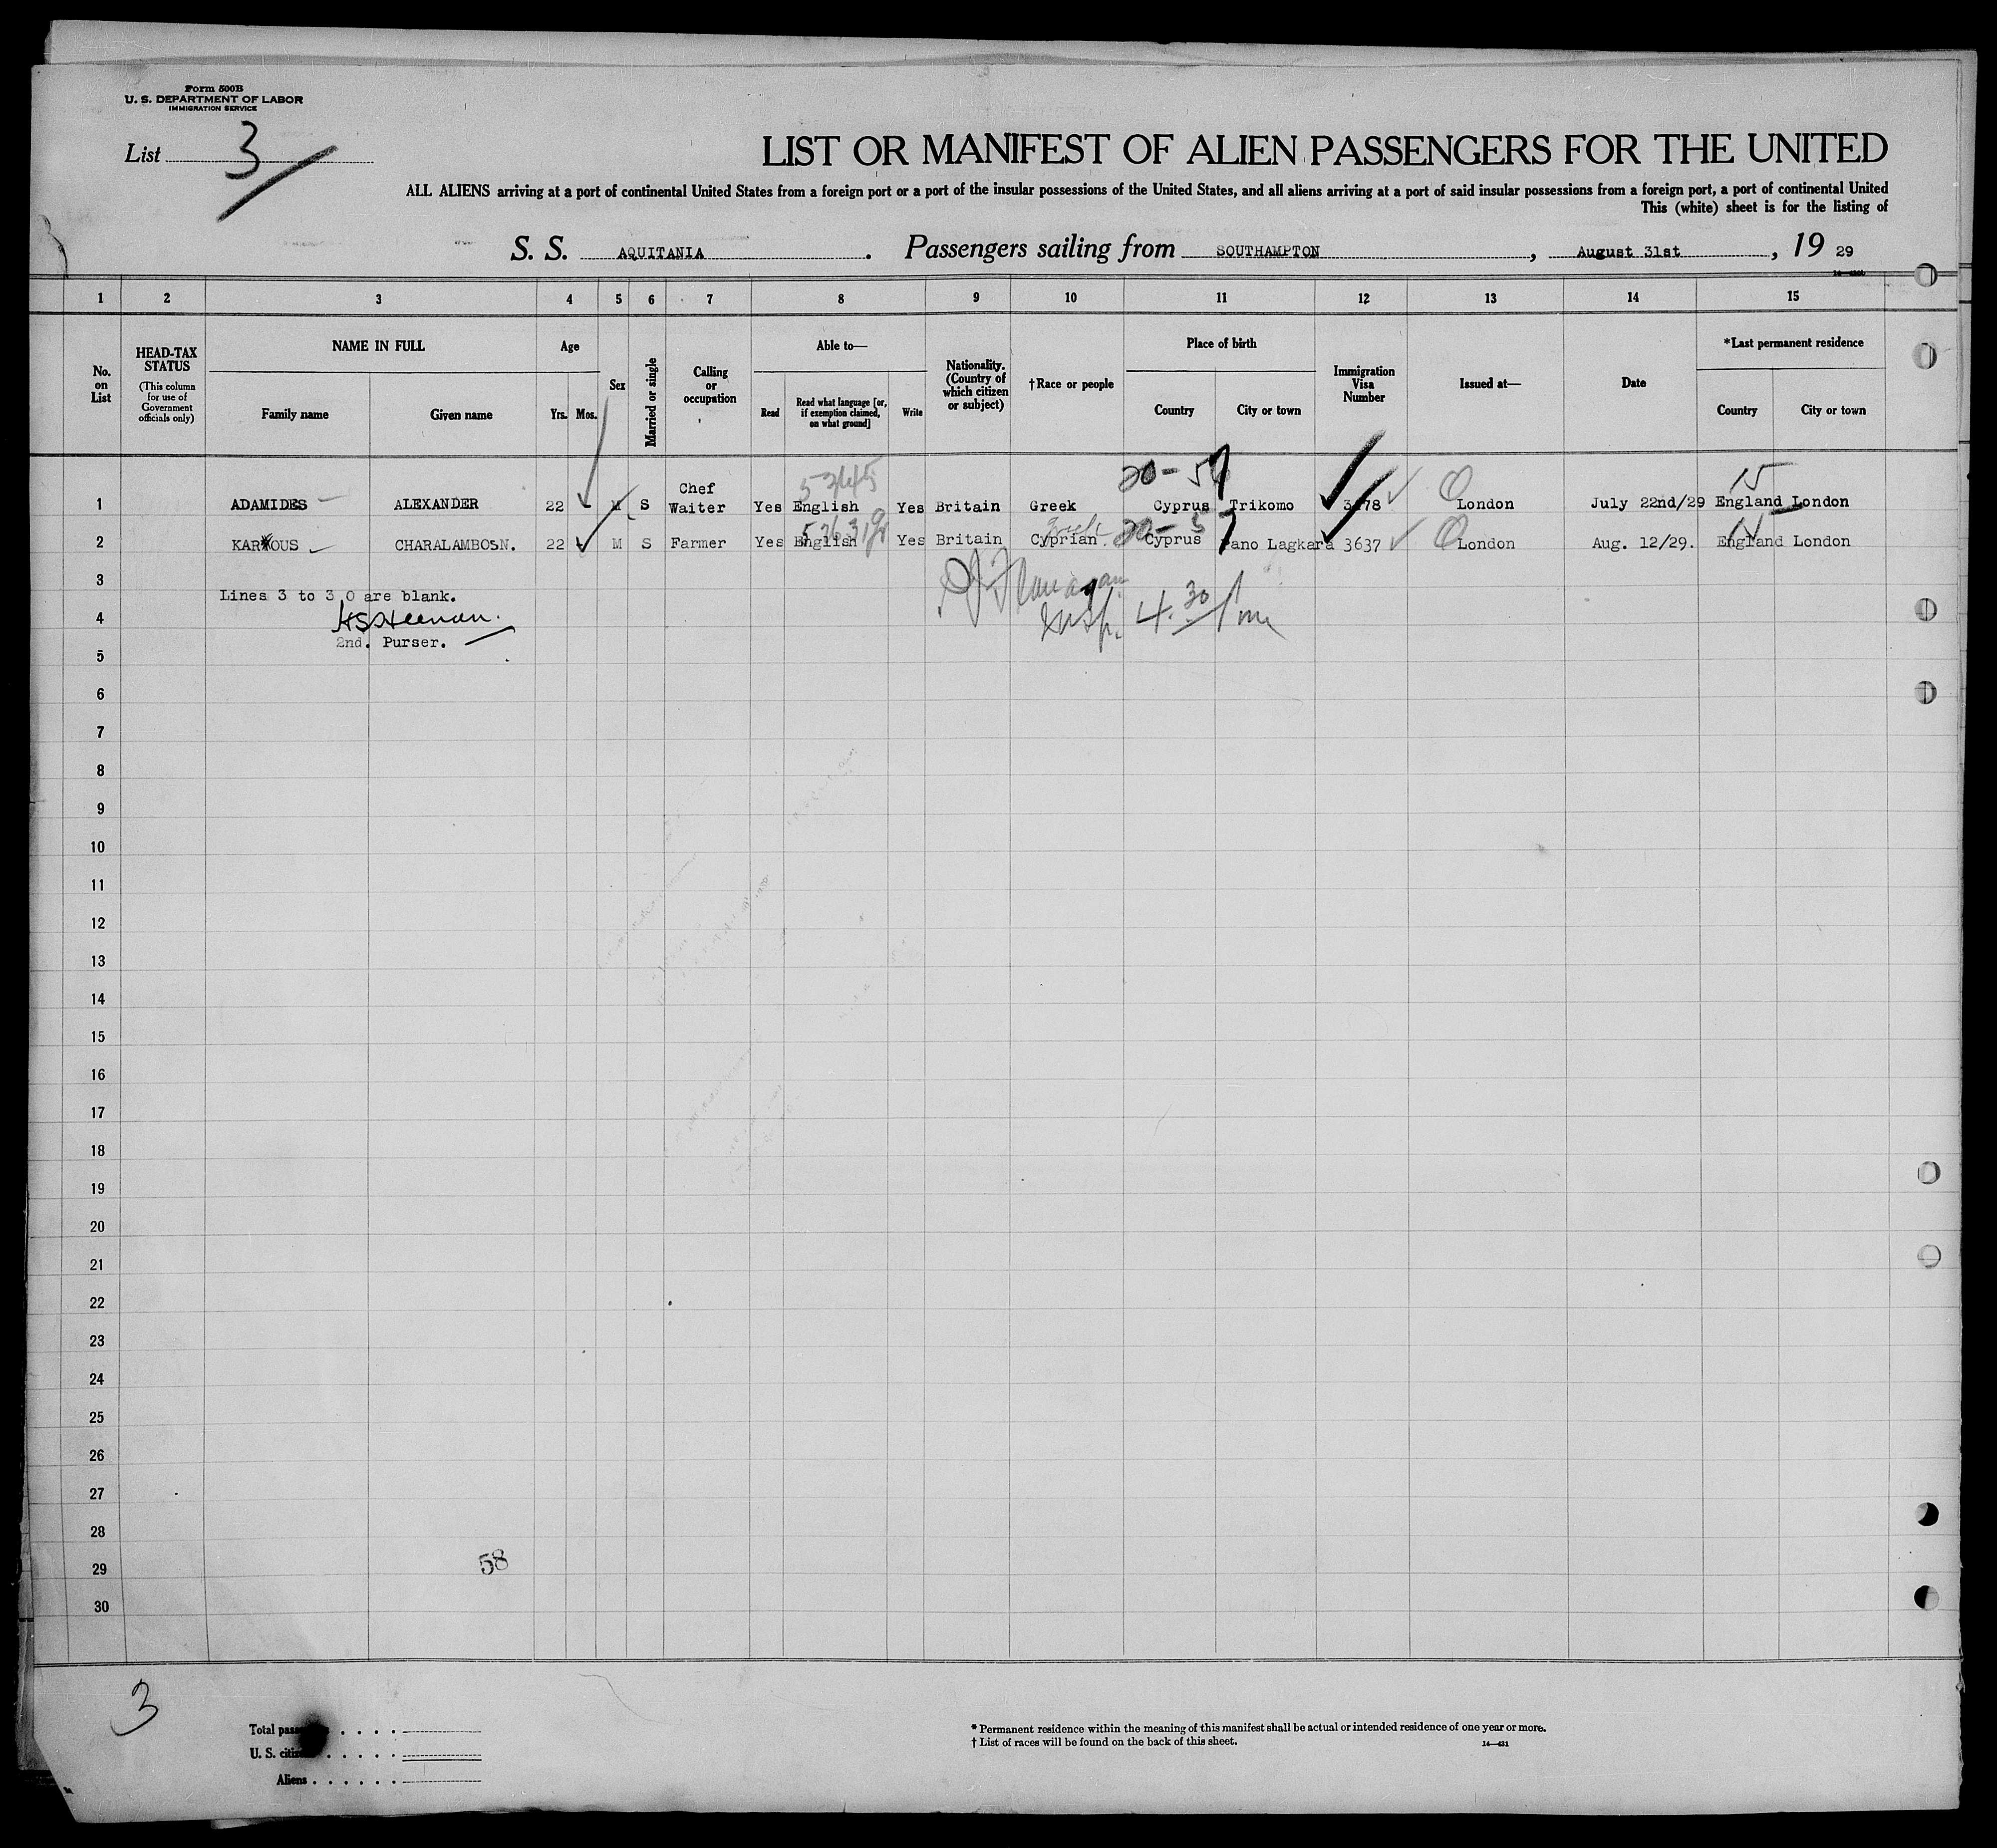 Form 500B
U. S. DEPARTMENT OF LABOR
IMMIGRATION SERVICE
List 3
LIST OR MANIFEST OF ALIEN PASSENGERS FOR THE UNITED
ALL ALIENS arriving at a port of continental United States from a foreign port or a port of the insular possessions of the United States, and all aliens arriving at a port of said insular possessions from a foreign port, a port of continental United
This (white) sheet is for the listing of
S. S. AQUITANIA. Passengers sailing from SOUTHAMPTON, August 31st, 19 29
1 2 3 4 5 6 7 8 9 10 11 12 13 14 15
No. on List
HEAD-TAX STATUS
(This column for use of Government officials only)
NAME IN FULL
Family name
Given name
Age
Yrs. Mos.
Sex
Married or single
Calling or occupation
Able to—
Read
Read what language [or, if exemption claimed, on what ground]
Write
Nationality. (Country of which citizen or subject)
†Race or people
Place of birth
Country
City or town
Immigration Visa Number
Issued at—
Date
*Last permanent residence
Country
City or town
5345 20-5 15
1 ADAMIDES ALEXANDER 22 M S Chef Waiter Yes English Yes Britain Greek Cyprus Trikomo London July 22nd/29 England London
Greek 20-5 14
2 CHARALAMBOS N. 22 M S Farmer Yes English Yes Britain Cyprian Cyprus Pano Lagkara 3637 London Aug. 12/29. England London
3
Lines 3 to 30 are blank.
Insp. 4.30 pm
4
2nd. Purser.
5
6
7
8
9
10
11
12
13
14
15
16
17
18
19
20
21
22
23
24
25
26
27
28
29
58
30
3
Total
U. S.
Aliens
* Permanent residence within the meaning of this manifest shall be actual or intended residence of one year or more.
† List of races will be found on the back of this sheet.